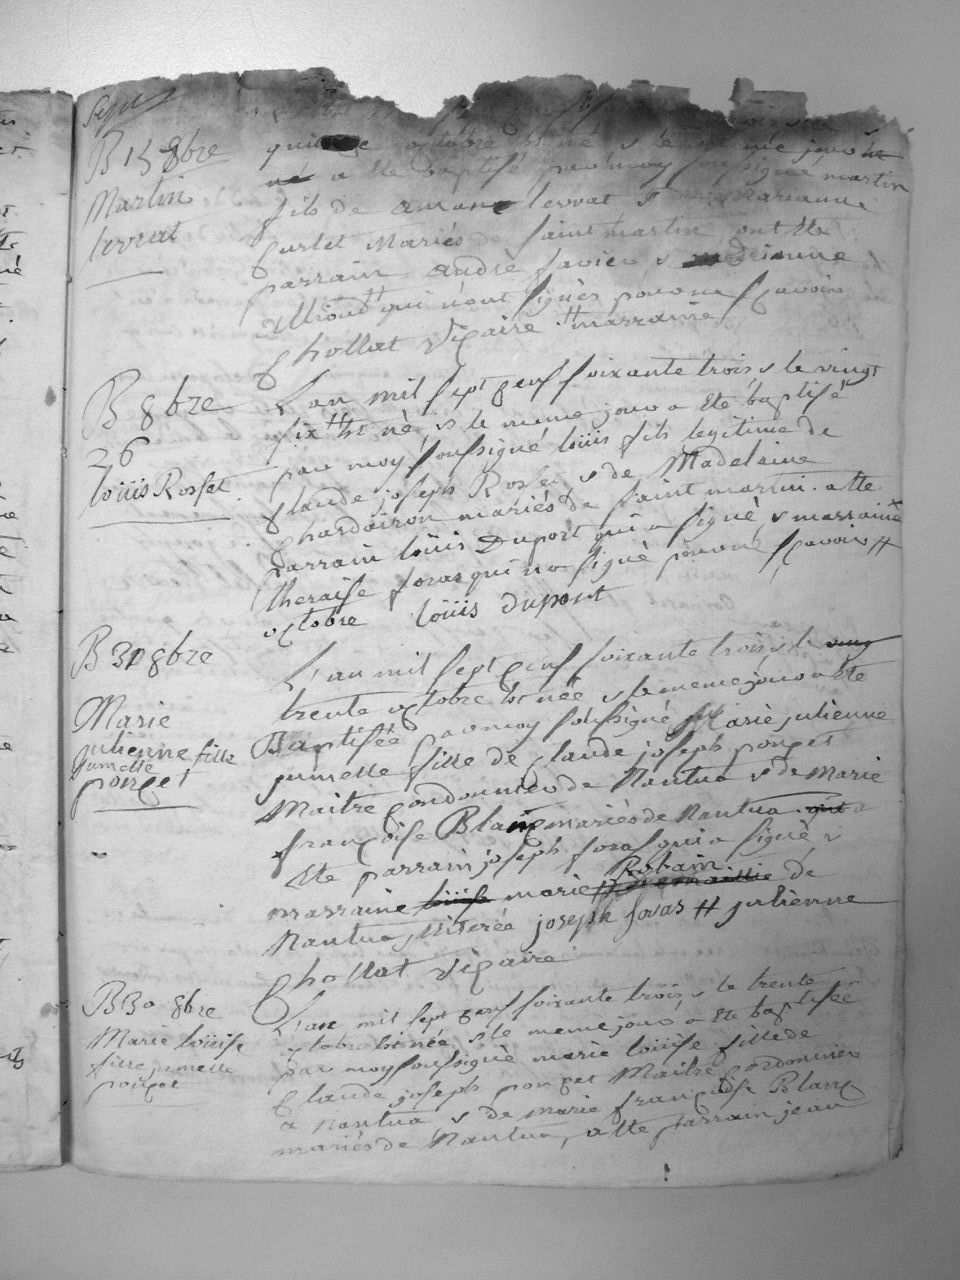 B 15 8bre
Martin
lervat
octobre est né & le même jour
a été baptisé par moy soussigné martin
fils de aman lervat & Marianne
gurlet Mariés de saint martin ont été
parrain andré favier &
qui n'ont signés pour ne sçavoir
Chollat Vicaire # marraine
B 8bre
26
loüis Rosset
L'an mil sept cens soixante trois & le vingt
six # est né, & le meme jour a été baptisé
par moy soussigné loüis fils legitime de
Claude joseph Rosset & de Madelaine
Chardoiron mariés de saint martin. a été
Parrain loüis Duport qui a signé, & marraine
theraise foras qui n'a signé pour ne sçavoir #
octobre loüis duport
B 30 8bre
Marie
julienne fille
jumelle
ponçet
L'an mil sept cens soixante trois & le vingt
trente octobre est née & le meme jour a été
Baptisée par moy soussigné Marie julienne
jumelle fille de Claude joseph ponçet
Maitre Cordonnier de Nantua & de Marie
françoise Blanc mariés de Nantua. qui a
été parrain joseph foras qui a signé &
Robain
marraine loüise marie # de
Nantua, illiterée joseph foras # julienne
Chollat Vicaire
B 30 8bre
Marie loüise
fille jumelle
ponçet
L'an mil sept cens soixante trois & le trente
octobre est née & le meme jour a été baptisée
par moy soussigné marie loüise fille de
Claude joseph ponçet Maitre Cordonnier
a Nantua & de marie françoise Blanc
mariés de Nantua, a été parrain jean